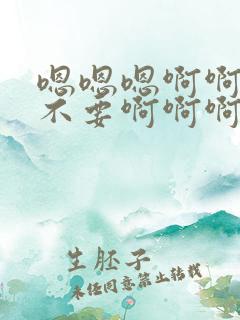 嗯嗯嗯啊啊
不要啊啊啊
生胚子
未经同意禁止转载